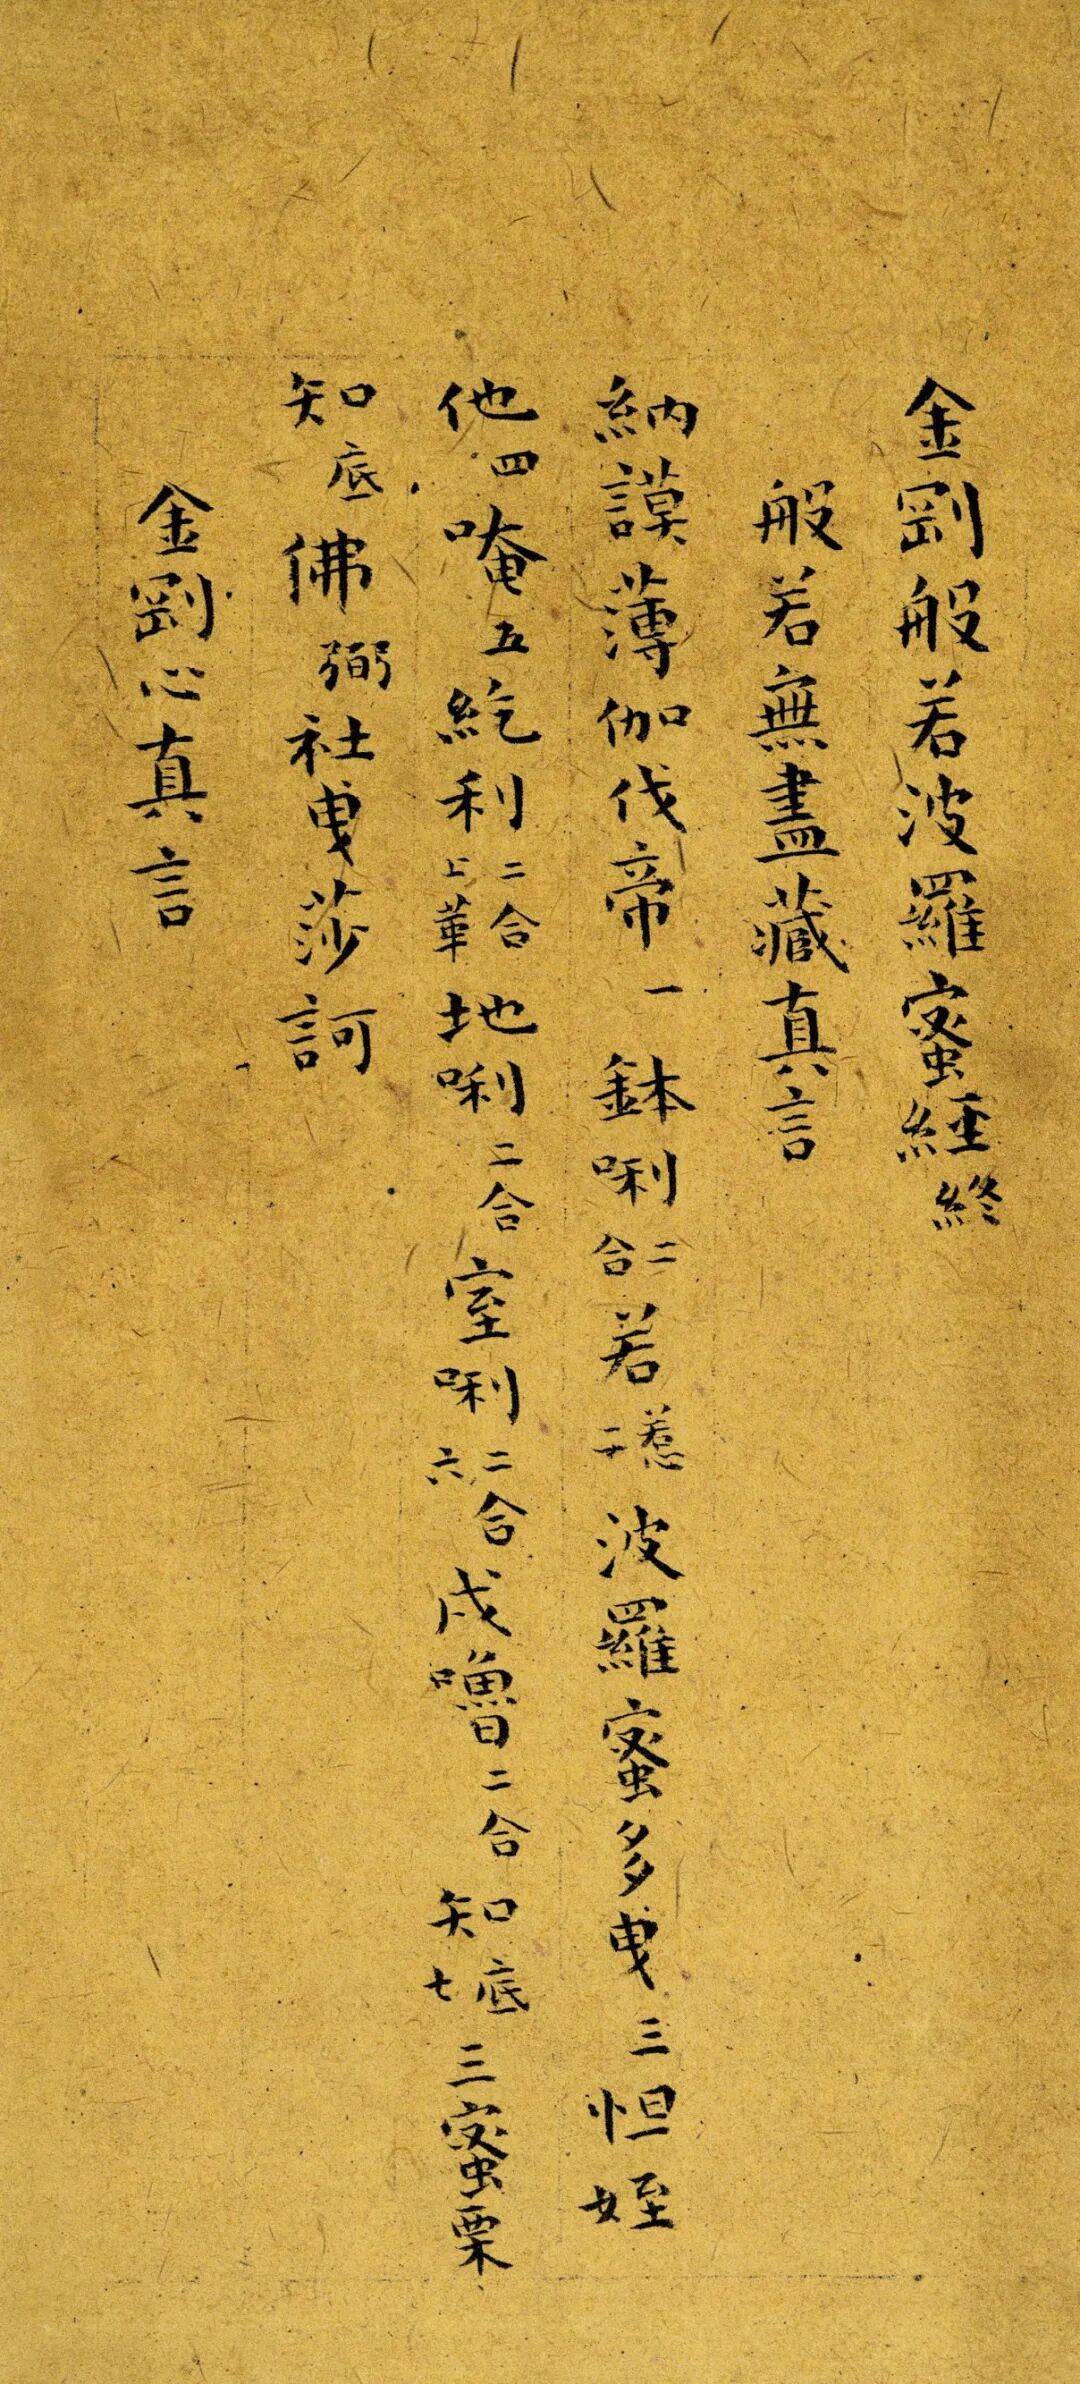 金剛般若波羅蜜経終
般若無盡藏真言
納謨薄伽伐帝一鉢唎二合若惹二波羅蜜多曳三怛姪
他四唵五紇利二合上華地唎二合室唎二合六戍嚕二合知底七三蜜栗
知底佛弼社曳莎訶
金剛心真言